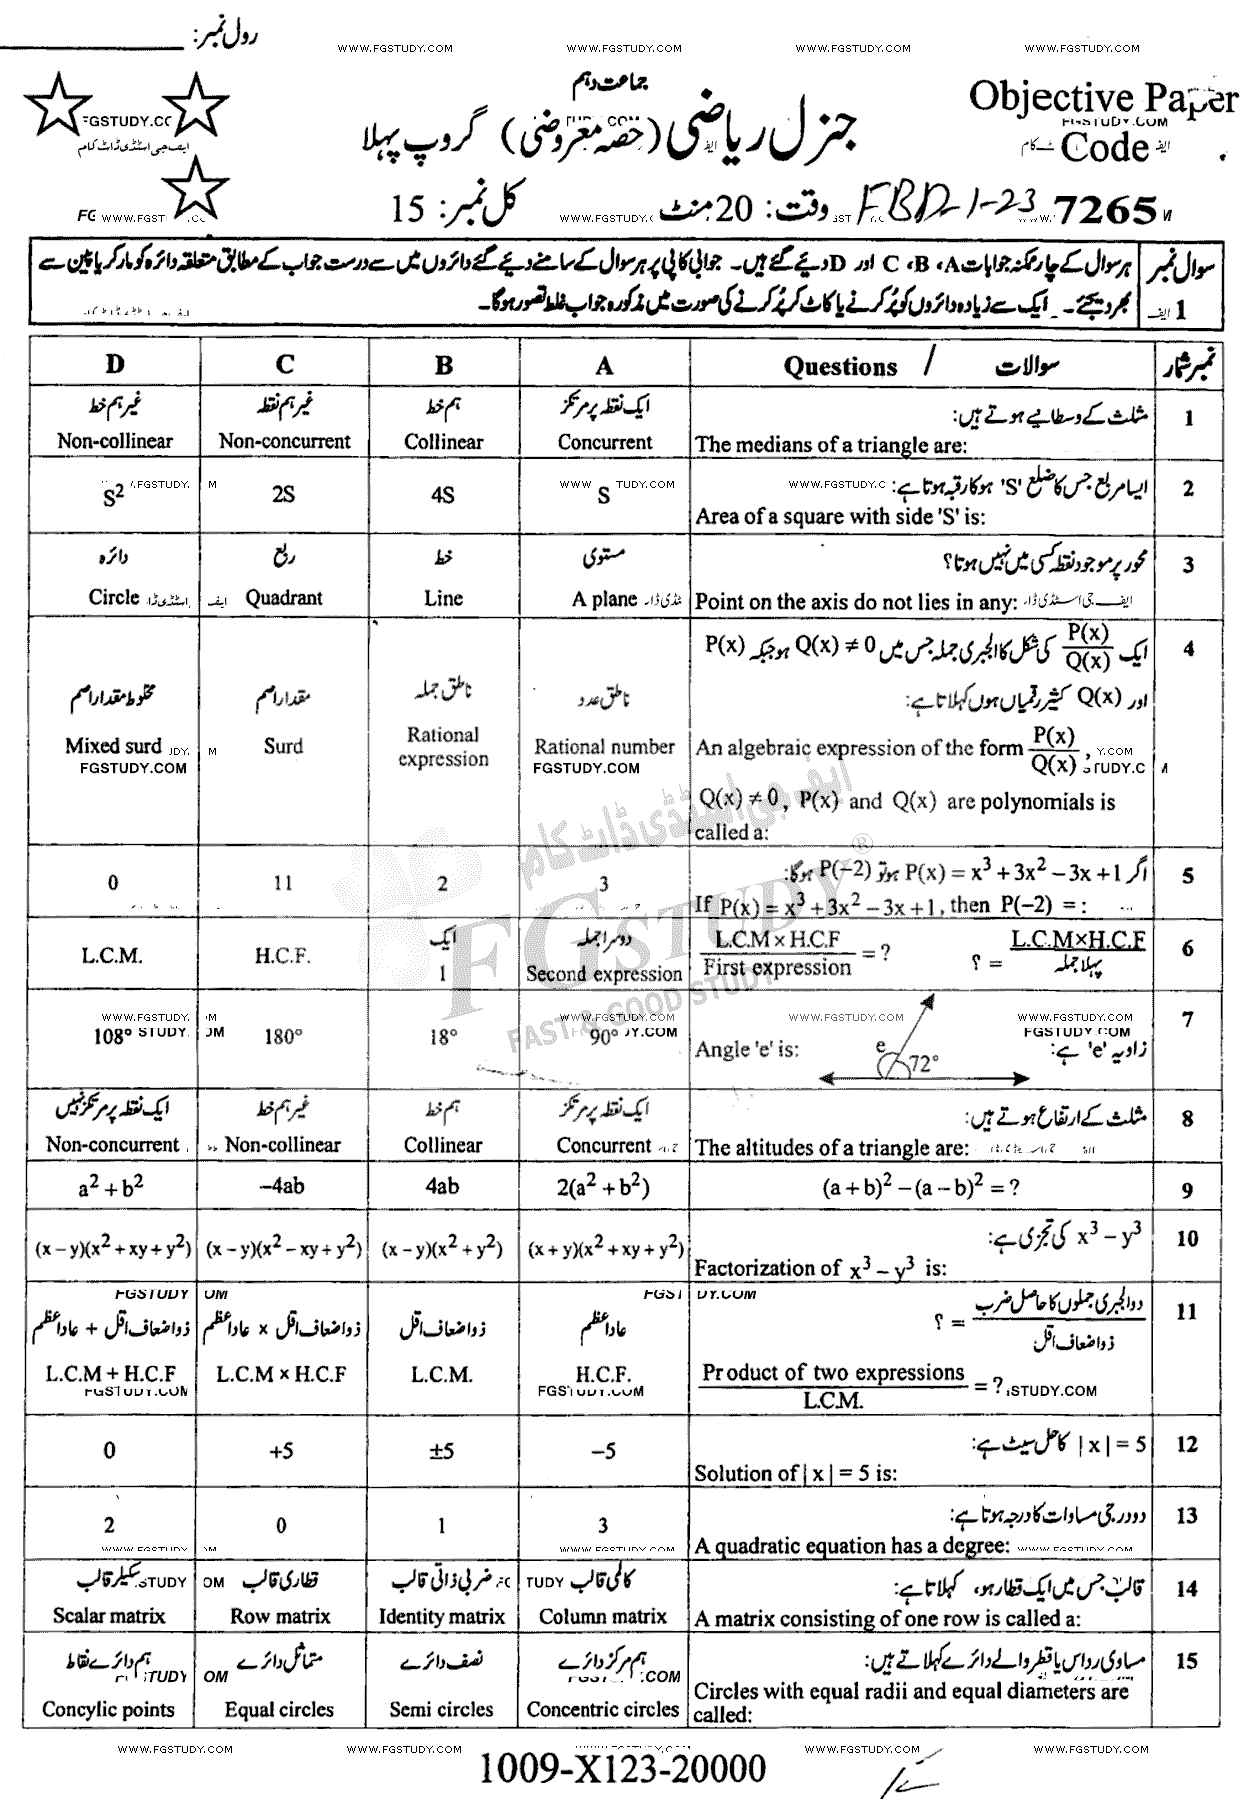 رول نمبر:
WWW.FGSTUDY.COM WWW.FGSTUDY.COM WWW.FGSTUDY.COM WWW.FGSTUDY.COM
جماعت دہم
Objective Paper
Code
FGSTUDY.COM
ایف جی اسٹڈی ڈاٹ کام
جنرل ریاضی (حصہ معروضی) گروپ پہلا
7265
FBD-1-23
وقت: 20 منٹ
کل نمبر: 15
سوال نمبر 1
ہر سوال کے چار ممکنہ جوابات A، B، C اور D دیئے گئے ہیں۔ جوابی کاپی پر ہر سوال کے سامنے دیئے گئے دائروں میں سے درست جواب کے مطابق متعلقہ دائرہ کو مارکر یا پین سے
بھر دیجئے۔ ایک سے زیادہ دائروں کو پُر کرنے یا کاٹ کر پُر کرنے کی صورت میں مذکورہ جواب غلط تصور ہوگا۔
D C B A Questions / سوالات نمبر شمار
غیر ہم خط غیر ہم نقطہ ہم خط ایک نقطہ پر مرتکز مثلث کے وسطانیے ہوتے ہیں: 1
Non-collinear Non-concurrent Collinear Concurrent The medians of a triangle are:
S² 2S 4S S ایسا مربع جس کا ضلع 'S' ہو کا رقبہ ہوتا ہے: 2
Area of a square with side 'S' is:
دائرہ ربع خط مستوی محور پر موجود نقطہ کسی میں نہیں ہوتا؟ 3
Circle Quadrant Line A plane Point on the axis do not lies in any:
ایک P(x)/Q(x) کی شکل کا الجبری جملہ جس میں Q(x) ≠ 0 ہو جبکہ P(x) 4
اور Q(x) کثیر رقمیاں ہوں کہلاتا ہے:
مخلوط مقدار اصم مقدار اصم ناطق جملہ ناطق عدد
Mixed surd Surd Rational expression Rational number An algebraic expression of the form P(x)/Q(x),
Q(x) ≠ 0, P(x) and Q(x) are polynomials is
called a:
0 11 2 3 اگر P(x) = x³ + 3x² − 3x + 1 ہو تو P(−2) ہوگا: 5
If P(x) = x³ + 3x² − 3x + 1, then P(−2) = :
L.C.M. H.C.F. ایک 1 دوسرا جملہ Second expression L.C.M × H.C.F / First expression = ? L.C.M×H.C.F / پہلا جملہ = ؟ 6
108° 180° 18° 90° Angle 'e' is: e 72° زاویہ 'e' ہے: 7
ایک نقطہ پر مرتکز نہیں غیر ہم خط ہم خط ایک نقطہ پر مرتکز مثلث کے ارتفاع ہوتے ہیں: 8
Non-concurrent Non-collinear Collinear Concurrent The altitudes of a triangle are:
a² + b² −4ab 4ab 2(a² + b²) (a + b)² − (a − b)² = ? 9
(x − y)(x² + xy + y²) (x − y)(x² − xy + y²) (x − y)(x² + y²) (x + y)(x² + xy + y²) x³ − y³ کی تجزی ہے: 10
Factorization of x³ − y³ is:
ذواضعاف اقل + عاد اعظم ذواضعاف اقل × عاد اعظم ذواضعاف اقل عاد اعظم دو الجبری جملوں کا حاصل ضرب / ذواضعاف اقل = ؟ 11
L.C.M + H.C.F L.C.M × H.C.F L.C.M. H.C.F. Product of two expressions / L.C.M. = ?
0 +5 ±5 −5 | x | = 5 کا حل سیٹ ہے: 12
Solution of | x | = 5 is:
2 0 1 3 دو درجی مساوات کا درجہ ہوتا ہے: 13
A quadratic equation has a degree:
سکیلر قالب قطاری قالب ضربی ذاتی قالب کالمی قالب قالب جس میں ایک قطار ہو، کہلاتا ہے: 14
Scalar matrix Row matrix Identity matrix Column matrix A matrix consisting of one row is called a:
ہم دائرے نقاط متماثل دائرے نصف دائرے ہم مرکز دائرے مساوی رداس یا قطر والے دائرے کہلاتے ہیں: 15
Concylic points Equal circles Semi circles Concentric circles Circles with equal radii and equal diameters are
called:
ایف جی اسٹڈی ڈاٹ کام
FG STUDY ®
FAST & GOOD STUDY
WWW.FGSTUDY.COM WWW.FGSTUDY.COM WWW.FGSTUDY.COM WWW.FGSTUDY.COM
1009-X123-20000